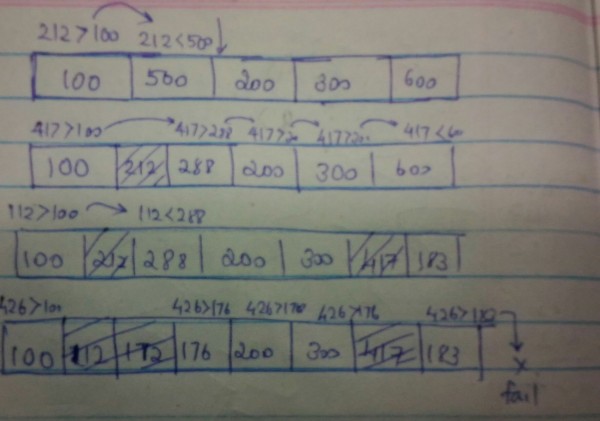 212>100 212<500
100 500 200 300 600
417>100 417>288 417>20 417>30 417<60
100 212 288 200 300 600
112>100 112<288
100 212 288 200 300 417 183
426>100 426>176 426>176
100 112 176 200 300 417 183
fail